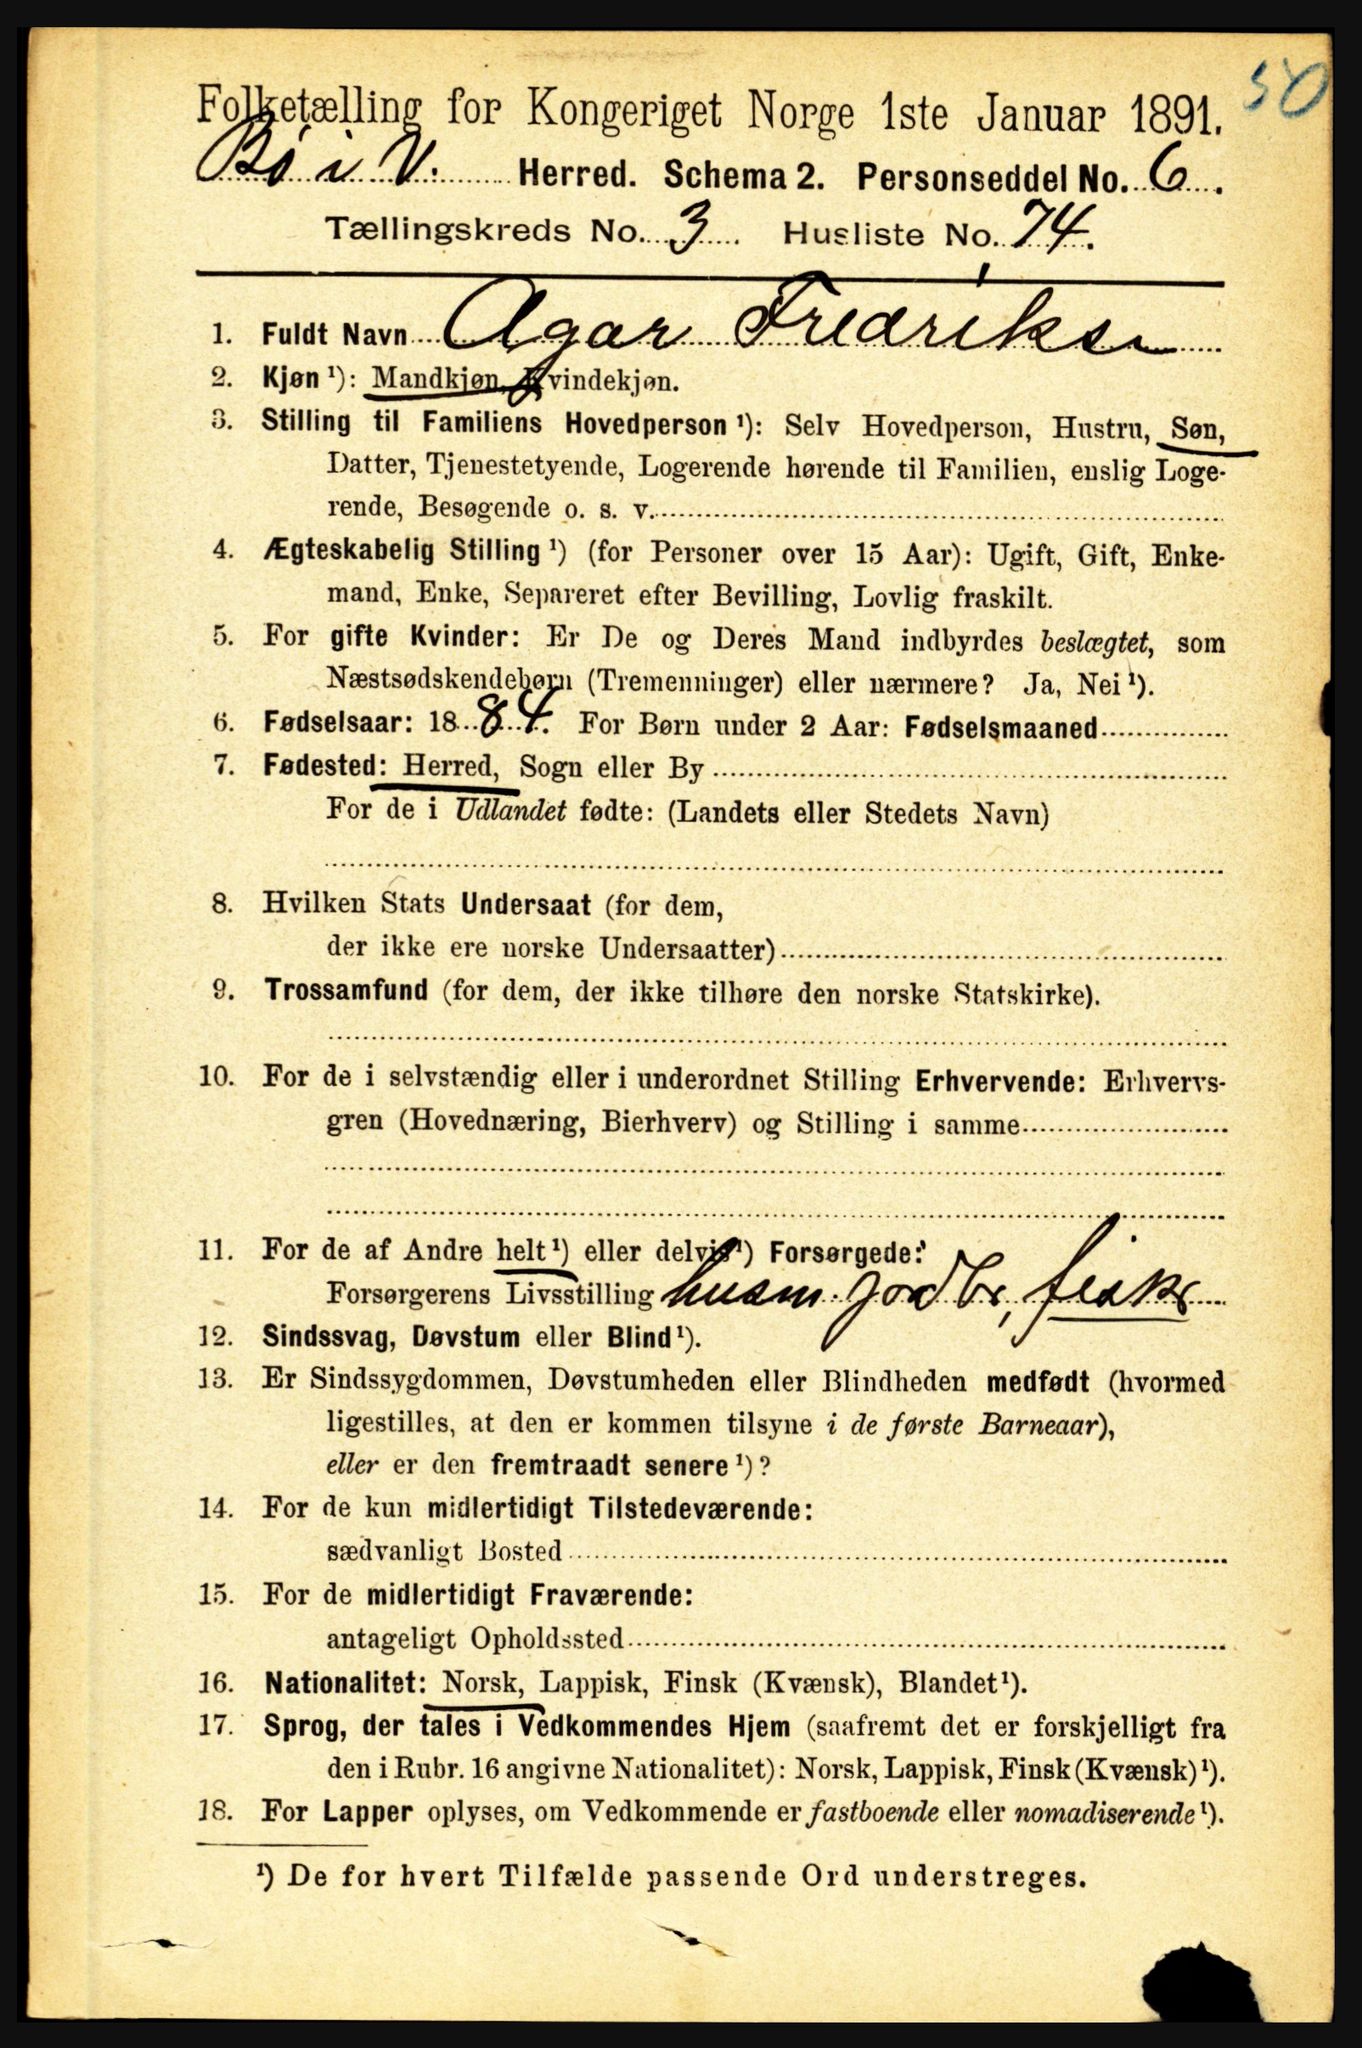 50
Folketælling for Kongeriget Norge 1ste Januar 1891.
Bø i V. Herred. Schema 2. Personseddel No. 6.
Tællingskreds No. 3 Husliste No. 74.
1. Fuldt Navn Agar Fredriksen
2. Kjøn ¹): Mandkjøn, Kvindekjøn.
3. Stilling til Familiens Hovedperson ¹): Selv Hovedperson, Hustru, Søn,
Datter, Tjenestetyende, Logerende hørende til Familien, enslig Loge-
rende, Besøgende o. s. v.
4. Ægteskabelig Stilling ¹) (for Personer over 15 Aar): Ugift, Gift, Enke-
mand, Enke, Separeret efter Bevilling, Lovlig fraskilt.
5. For gifte Kvinder: Er De og Deres Mand indbyrdes beslægtet, som
Næstsødskendebørn (Tremenninger) eller nærmere? Ja, Nei ¹).
6. Fødselsaar: 1884. For Børn under 2 Aar: Fødselsmaaned
7. Fødested: Herred, Sogn eller By
For de i Udlandet fødte: (Landets eller Stedets Navn)
8. Hvilken Stats Undersaat (for dem,
der ikke ere norske Undersaatter)
9. Trossamfund (for dem, der ikke tilhøre den norske Statskirke).
10. For de i selvstændig eller i underordnet Stilling Erhvervende: Erhvervs-
gren (Hovednæring, Bierhverv) og Stilling i samme
11. For de af Andre helt ¹) eller delvis ¹) Forsørgede:
Forsørgerens Livsstilling husm. jordbr, fisker
12. Sindssvag, Døvstum eller Blind ¹).
13. Er Sindssygdommen, Døvstumheden eller Blindheden medfødt (hvormed
ligestilles, at den er kommen tilsyne i de første Barneaar),
eller er den fremtraadt senere ¹)?
14. For de kun midlertidigt Tilstedeværende:
sædvanligt Bosted
15. For de midlertidigt Fraværende:
antageligt Opholdssted
16. Nationalitet: Norsk, Lappisk, Finsk (Kvænsk), Blandet ¹).
17. Sprog, der tales i Vedkommendes Hjem (saafremt det er forskjelligt fra
den i Rubr. 16 angivne Nationalitet): Norsk, Lappisk, Finsk (Kvænsk) ¹).
18. For Lapper oplyses, om Vedkommende er fastboende eller nomadiserende ¹).
¹) De for hvert Tilfælde passende Ord understreges.